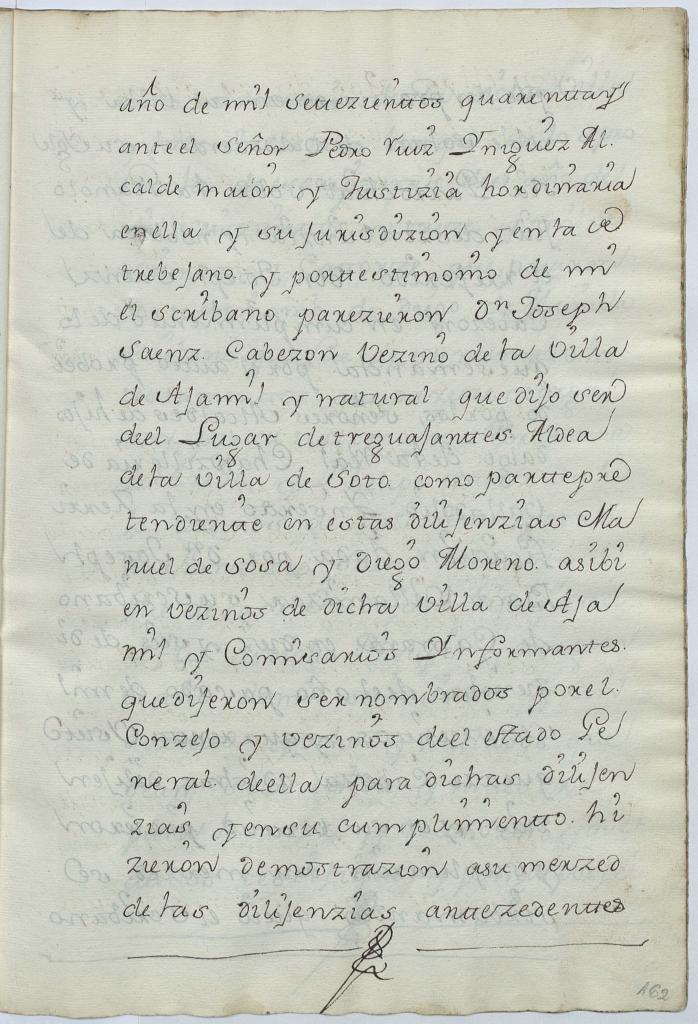 año de mil setezienttos quarentta y
ante el señor Pedro Ruiz Yniguez Al
calde maior y Justizia hordinaria
enella y su Jurisdizion y en la de
trebejano y porttestimonio de mi
el scribano parezieron Dn Joseph
Saenz Cabezon vezino de la villa
de Ajamil y natural que dijo ser
deel Lugar de treguajanttes Aldea
de la villa de Soto como parttepre
tendientte en estas dilijenzias Ma
nuel de Sosa y Diego Moreno asibi
en vezinos de dicha villa de Aja
mil y Comisarios Ynformantes
que dijeron ser nombrados por el
Conzejo y vezinos deel estado Ge
neral deella para dichas dilijen
zias y en su cumplimientto hi
zieron demostrazion asu merzed
de las dilijenzias anttezedenttes
162